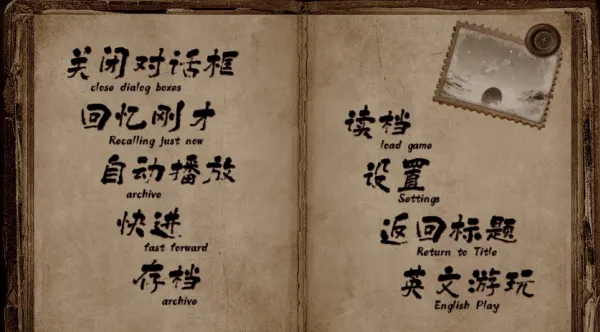 关闭对话框
close dialog boxes
回忆刚才
Recalling just now
自动播放
archive
快进
fast forward
存档
archive
读档
load game
设置
Settings
返回标题
Return to Title
英文游玩
English Play